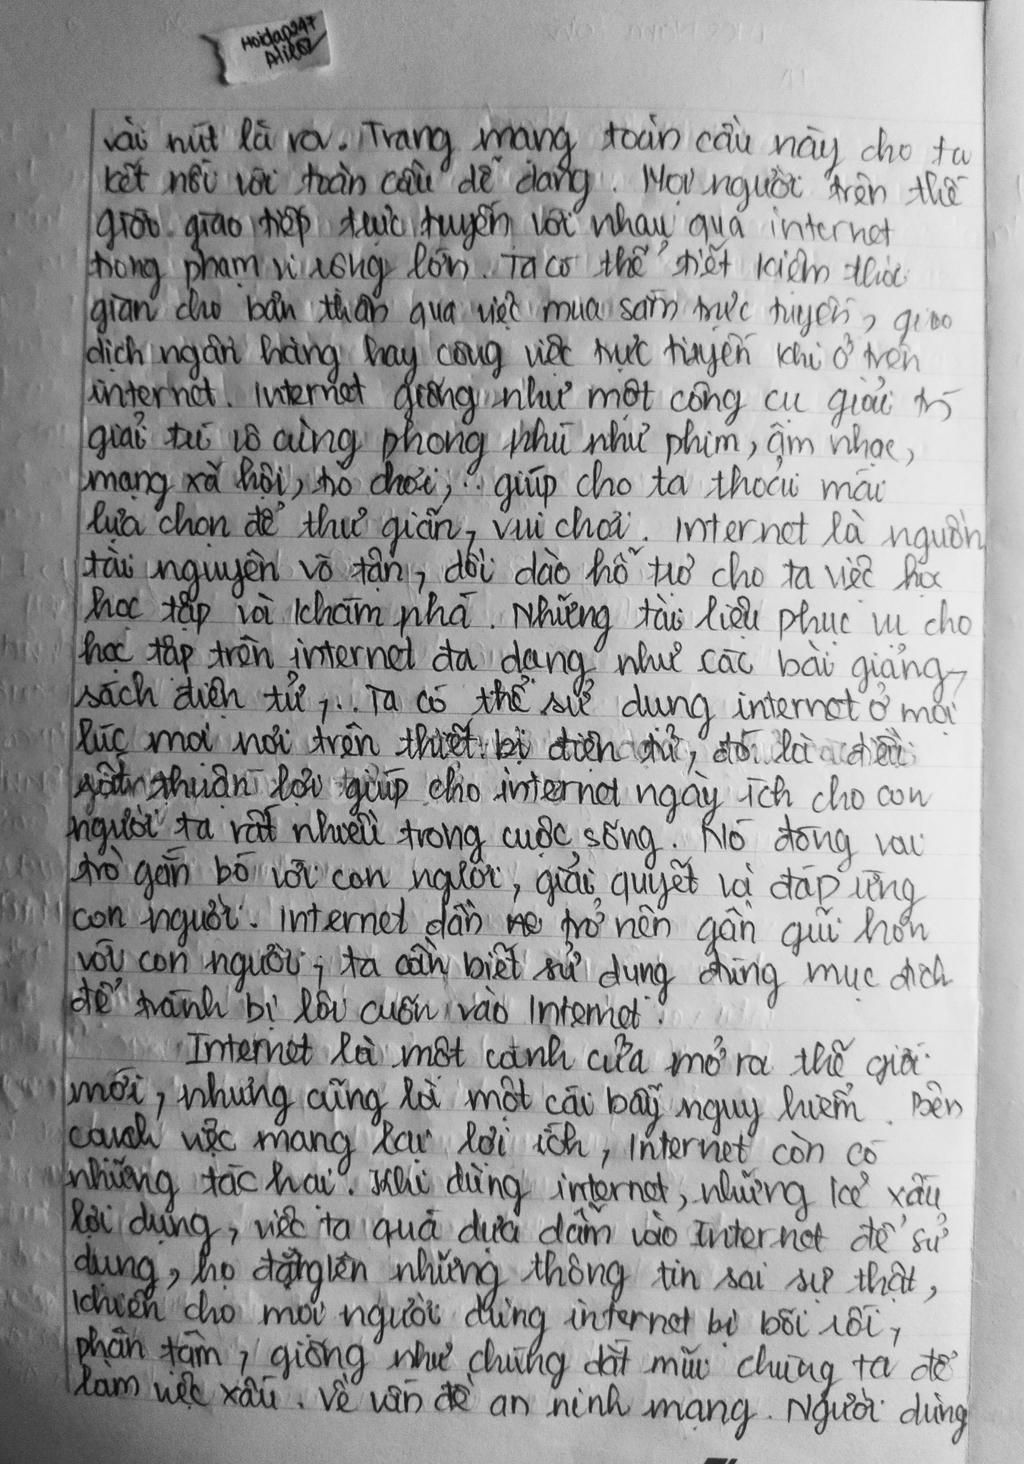 Hoidap247
vài nút là ra. Trang mạng toàn cầu này cho ta
kết nối với toàn cầu dễ dàng. Mọi người trên thế
giới giao tiếp trực tuyến với nhau qua internet
trong phạm vi rộng lớn. Ta có thể tiết kiệm thời
gian cho bản thân qua việc mua sắm trực tuyến, giao
dịch ngân hàng hay công việc trực tuyến khi ở trên
internet. Internet giống như một công cụ giải trí
giải trí vô cùng phong phú như phim, âm nhạc,
mạng xã hội, trò chơi,.. giúp cho ta thoải mái
lựa chọn để thư giãn, vui chơi. Internet là nguồn
tài nguyên vô tận, dồi dào hỗ trợ cho ta việc học
học tập và khám phá. Những tài liệu phục vụ cho
học tập trên internet đa dạng như các bài giảng,
sách điện tử,... Ta có thể sử dụng internet ở mọi
lúc mọi nơi trên thiết bị điện tử, đó là điều
rất thuận lợi giúp cho internet ngày ích cho con
người ta rất nhiều trong cuộc sống. Nó đóng vai
trò gắn bó với con người, giải quyết và đáp ứng
con người. Internet dần trở nên gần gũi hơn
với con người, ta cần biết sử dụng đúng mục đích
để tránh bị lôi cuốn vào Internet.
Internet là một cánh cửa mở ra thế giới
mới, nhưng cũng là một cái bẫy nguy hiểm. Bên
cạnh việc mang lại lợi ích, Internet còn có
những tác hại. Khi dùng internet, những kẻ xấu
lợi dụng, việc ta quá dựa dẫm vào Internet để sử
dụng, họ đặt lên những thông tin sai sự thật,
khiến cho mọi người dùng internet bị bối rối,
phân tâm, giống như chúng dắt mũi chúng ta để
làm việc xấu. Về vấn đề an ninh mạng. Người dùng